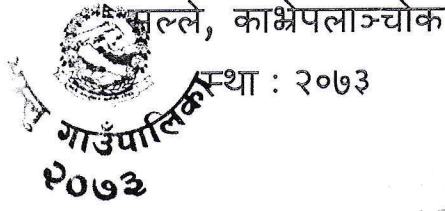 मल्ले, काभ्रेपलाञ्चोक
स्था : २०७३
गाउँपालिका
२०७३